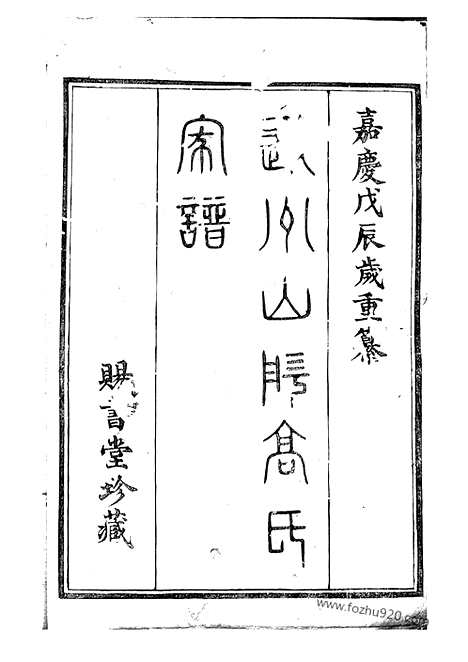 嘉慶戊辰歲重纂
山 高氏
家譜
賜書堂珍藏
www.fozhu920.com